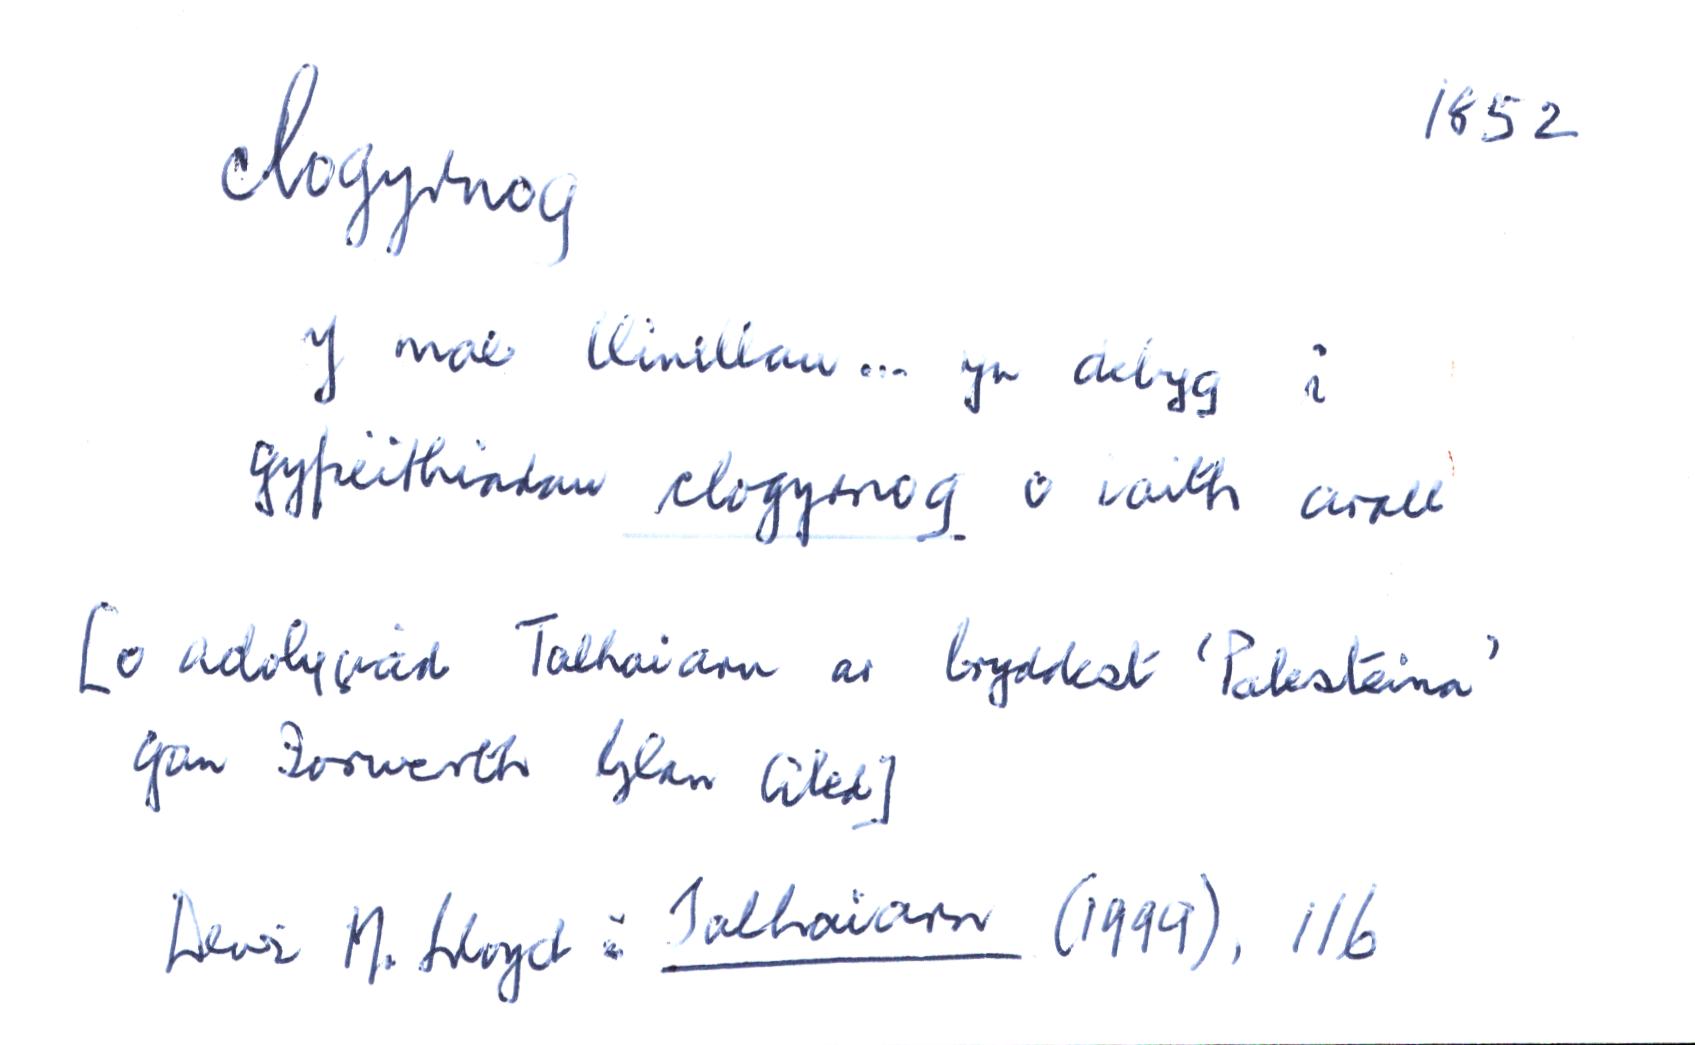 1852
clogyrnog
Y mae llinellau... yn debyg i
gyfieithiadau clogyrnog o iaith arall
[o adolygiad Talhaiarn ar bryddest 'Palesteina'
gan Iorwerth Glan Aled]
Dewi M. Lloyd : Talhaiarn (1999), 116